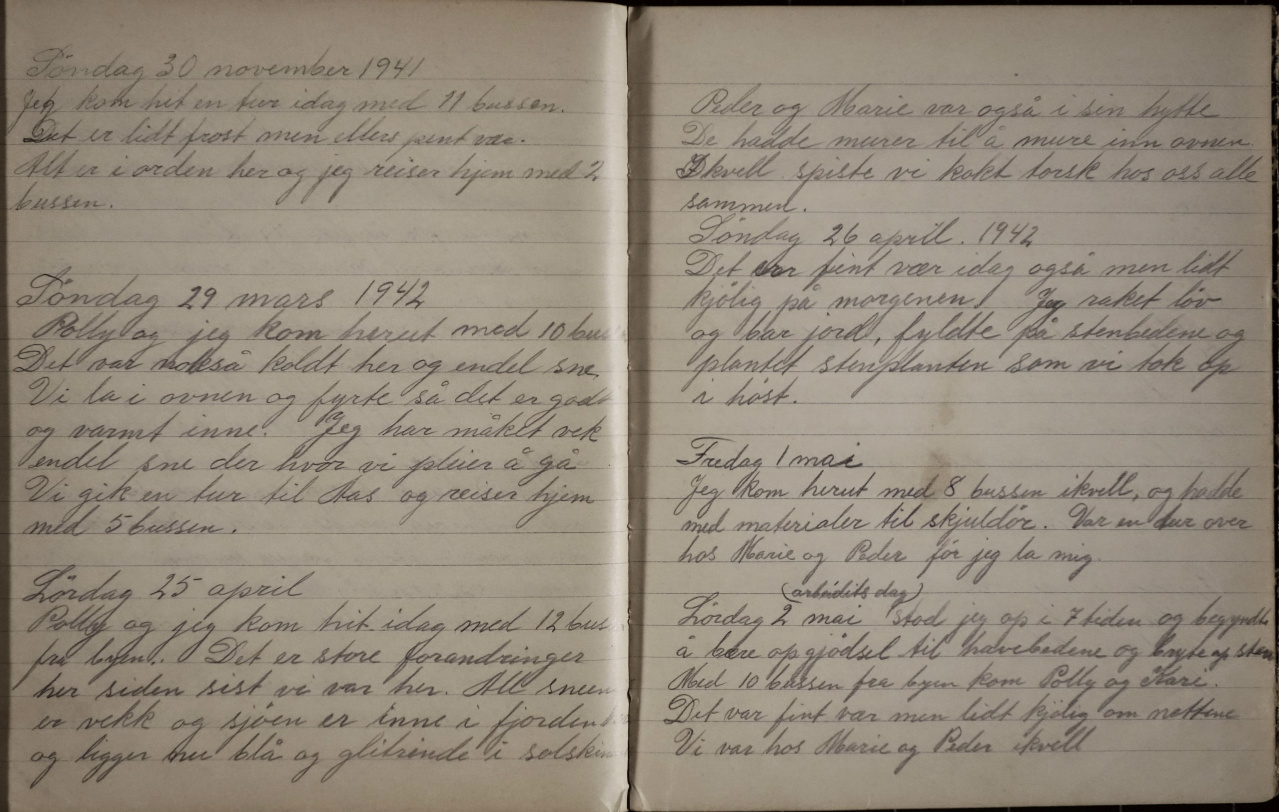 Søndag 30 november 1941
Jeg kom hit en tur idag med 11 bussen.
Det er lidt frost men ellers pent vær.
Alt er i orden her og jeg reiser hjem med 2
bussen.
Søndag 29 mars 1942
Polly og jeg kom herut med 10 bus
Det var også koldt her og endel sne.
Vi la i ovnen og fyrte så det er godt
og varmt inne. Jeg har måket vek
endel sne der hvor vi pleier å gå
Vi gik en tur til Aas og reiser hjem
med 5 bussen.
Lördag 25 april
Polly og jeg kom hit idag med 12 bus
fra byen. Det er store forandringer
her siden sist vi var her. All sneen
er vekk og sjöen er inne i fjorden
og ligger nu blå og glitrende i solskin
Peder og Marie var også i sin hytte
De hadde murer til å mure inn ovnen.
Ikvell spiste vi kokt torsk hos oss alle
sammen.
Søndag 26 april. 1942
Det er fint vær idag også men lidt
kjölig på morgenen. Jeg raket löv
og bar jord, fyldte på stenbedene og
plantet stenplanten som vi tok op
i höst.
Fredag 1 mai
Jeg kom herut med 8 bussen ikvell, og hadde
med materialer til skjuldör. Var en tur over
hos Marie og Peder för jeg la mig.
(arbeidits dag)
Lördag 2 mai stod jeg op i 7 tiden og begyndte
å bære op gjödsel til havebedene og bryte op sten
Med 10 bussen fra byen kom Polly og Kare.
Det var fint vær men lidt kjölig om nettene
Vi var hos Marie og Peder ikvell